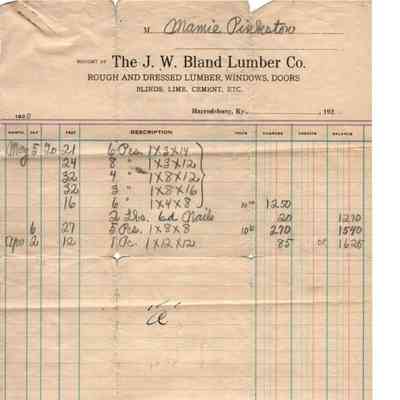 M Mamie Pinkston
BOUGHT OF The J. W. Bland Lumber Co.
ROUGH AND DRESSED LUMBER, WINDOWS, DOORS
BLINDS, LIME, CEMENT, ETC.
Harrodsburg, Ky., 192
1920
MONTH DAY FEET DESCRIPTION PRICE CHARGES CREDITS BALANCE
May 5 20 21 6 Pcs. 1 X 3 X 14
24 8 " 1 X 3 X 12
32 4 " 1 X 8 X 12
32 3 " 1 X 8 X 16
16 6 " 1 X 4 X 8 1250
2 Lbs. 6d Nails 20 1270
6 27 5 Pcs. 1 X 8 X 8 270 1540
2 12 1 Pc. 1 X 12 X 12 85 1625